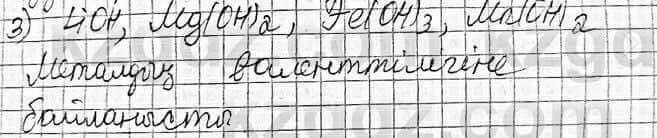 3) LiOH, Mg(OH)2, Fe(OH)3, Mn(OH)2
Металдың валенттілігіне
байланысты